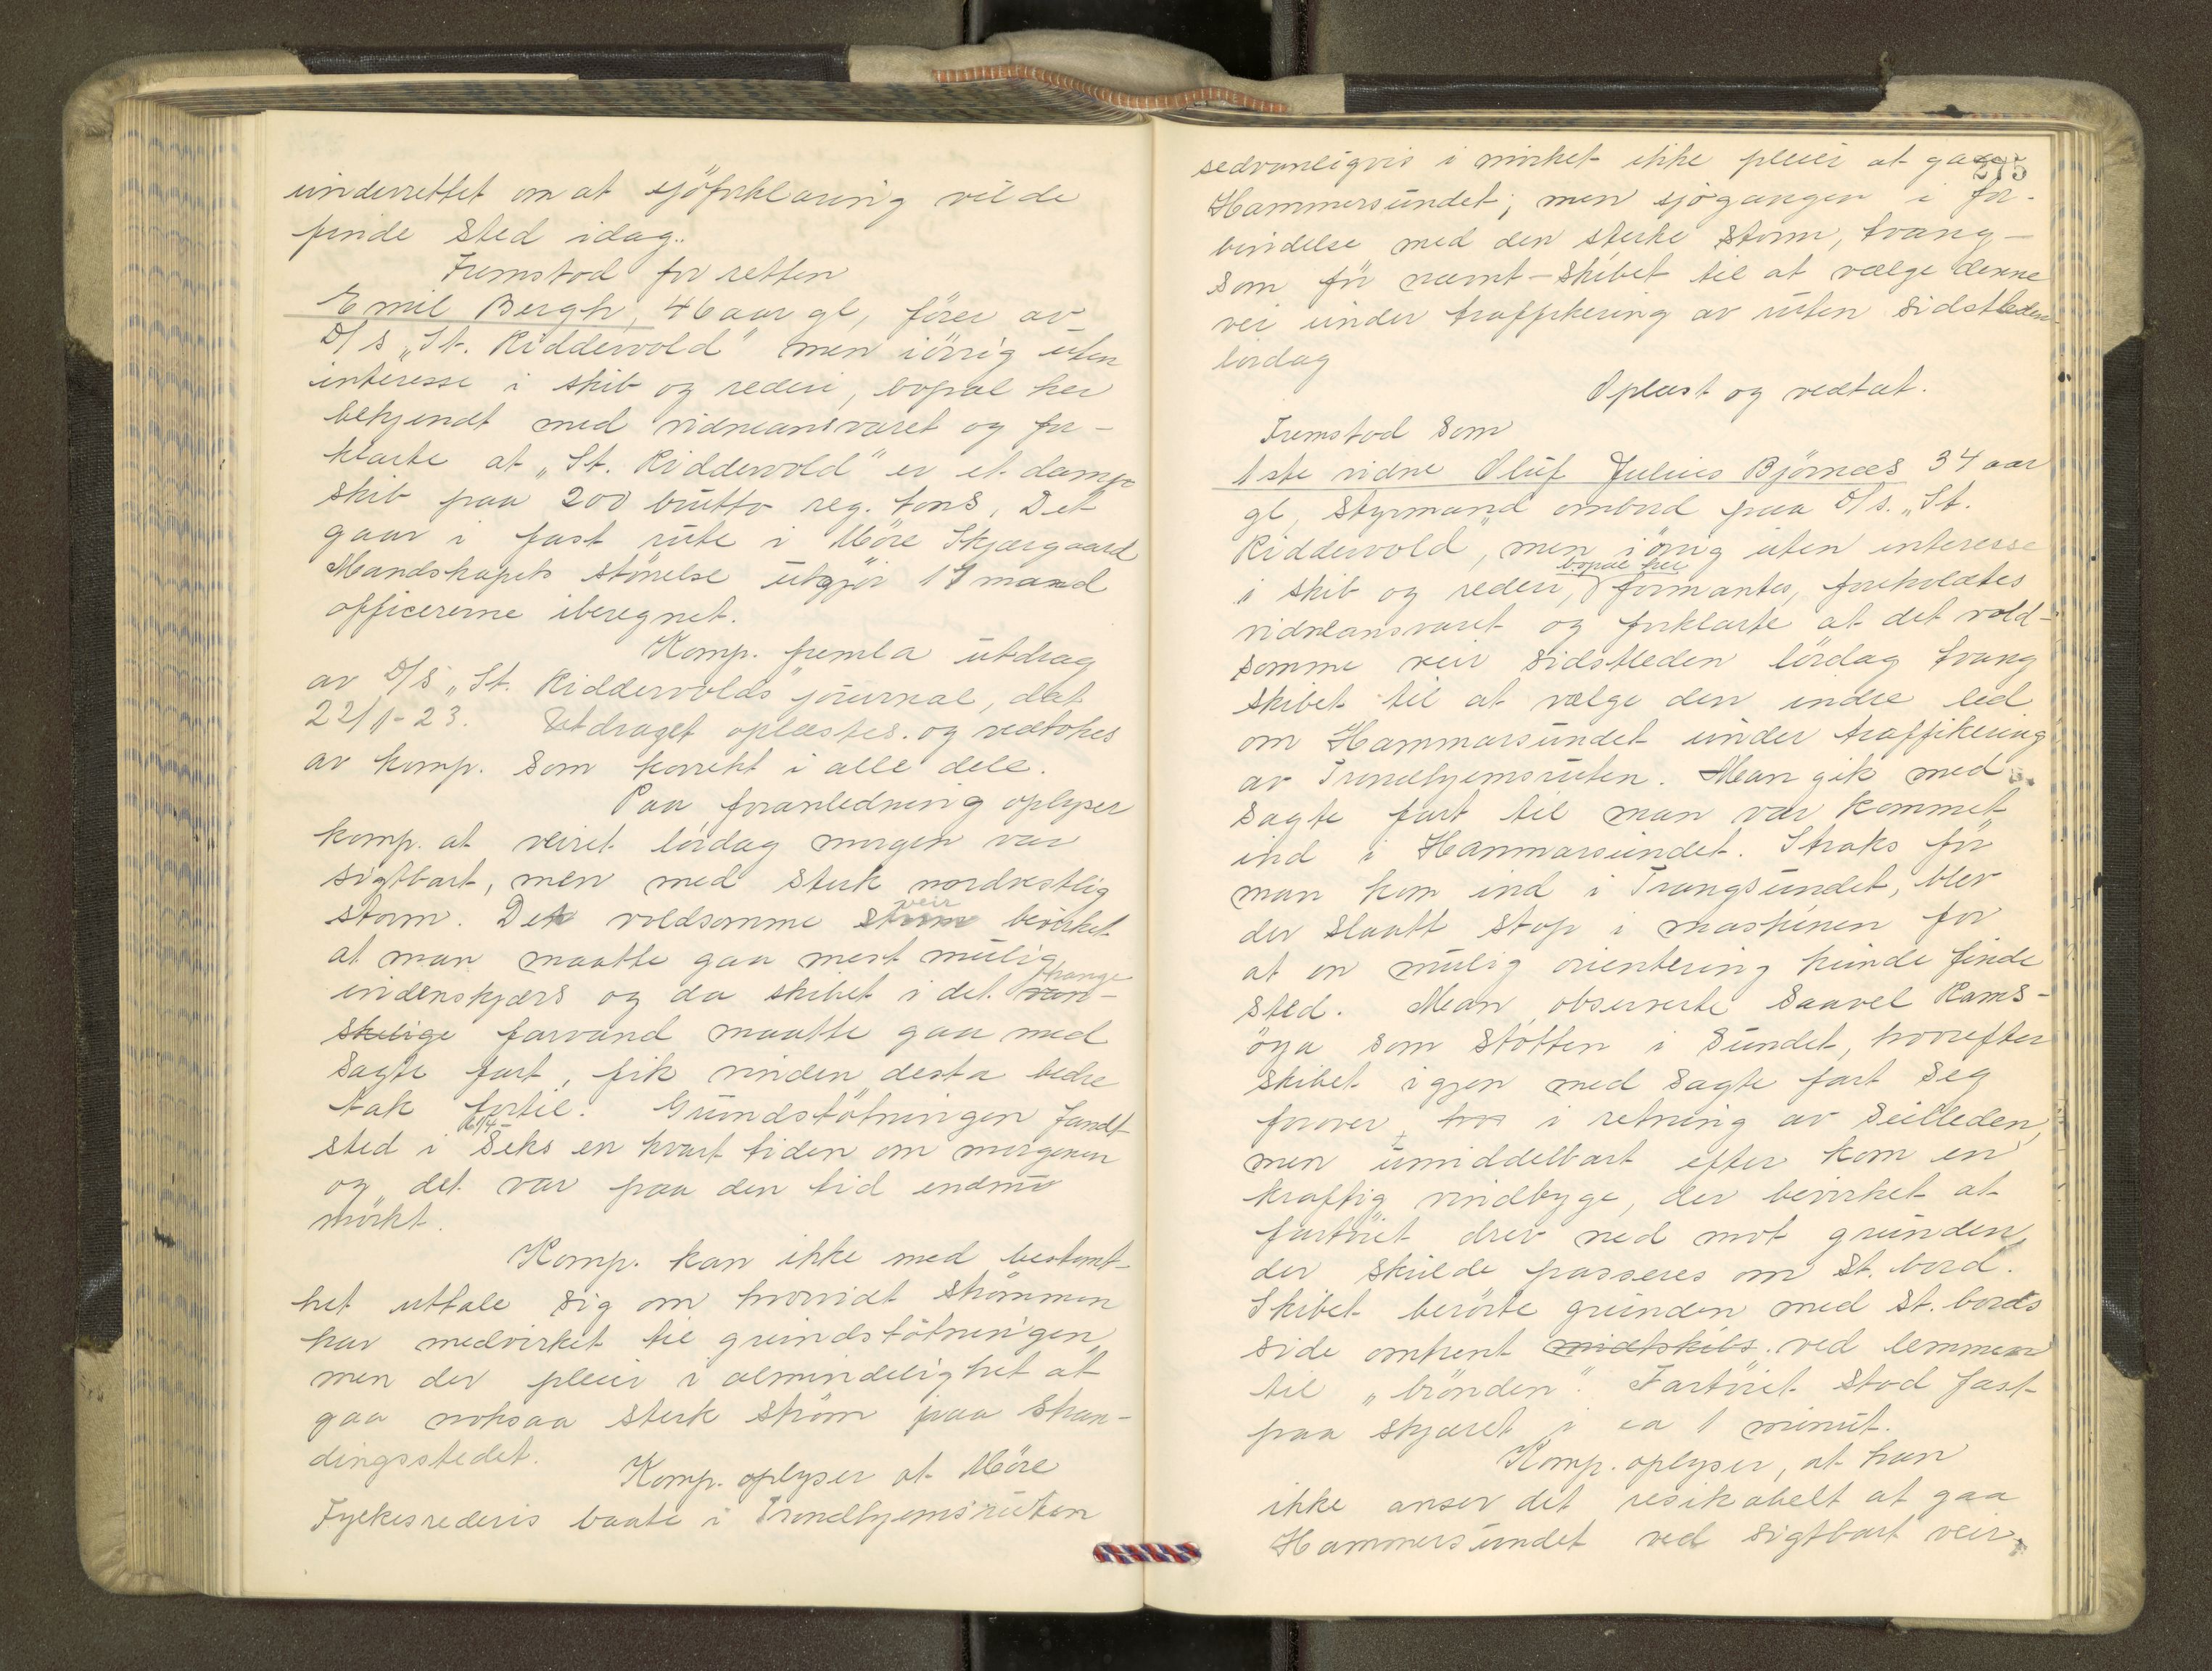 underrettet om at sjöforklaring vilde
finde sted idag.
Fremstod for retten
Emil Bergh, 46 aar gl, förer av
D/s „St. Riddervold" men iövrig uten
interesse i skib og rederi, bopæl her
bekjendt med vidneansvaret og for-
klarte at „St. Riddervold" er et damp
skib paa 200 brutto reg. tons, Det
gaar i fast rute i Möre Skjærgaard
Mandskapets störrelse utgjör 17 mand
officererne iberegnet.
Komp. fremla utdrag
av D/s „St. Riddervolds" journal, dat
22/1-23. Utdraget oplæstes og vedtokes
av komp. som korrekt i alle dele.
Paa foranledning oplyser
komp. at veiret lördag morgen var
sigtbart, men med sterk nordvestlig
storm. Det voldsomme storm veir bevirket
at man maatte gaa mest mulig
indenskjærs og da skibet i det van- trange
skelige farvand maatte gaa med
sagte fart, fik vinden desto bedre
tak fortil. Grundstötningen fandt
sted i 6 1/4 - Seks en kvart tiden om morgenen
og det var paa den tid endnu
mörkt.
Komp. kan ikke med bestemt-
het uttale sig om hvorvidt strömmen
har medvirket til grundstötningen,
men der pleier i almindelighet at
gaa noksaa sterk ström paa stran-
dingsstedet.
Komp. oplyser at Möre
Fylkesrederis baate i Trondhjemsruten
275
sedvanligvis i mörket ikke pleier at gaa
Hammersundet; men sjögangen i for-
bindelse med den sterke storm, tvang -
som för nævnt - skibet til at vælge denne
vei under traffikering av ruten sidstleden
lördag
Oplæst og vedtat.
Fremstod som
1ste vidne Oluf Julius Björnæs 34 aar
gl, styrmand ombord paa D/s. „St.
Riddervold", men iövrig uten interesse
i skib og rederi, bopæl her formantes, foreholdtes
vidneansvaret og forklarte at det vold-
somme veir sidstleden lördag tvang
skibet til at vælge den indre led
om Hammarsundet under traffikering
av Trondhjemsruten. Man gik med
sagte fart til man var kommet
ind i Hammarsundet. Straks för
man kom ind i Trangsundet, blev
der slaatt stop i maskinen for
at en mulig orientering kunde finde
sted. Man observerte saavel Rams-
öya som stötten i Sundet, hvorefter
skibet igjen med sagte fart seg
forover i retning av seilleden,
men umiddelbart efter kom en
kraftig vindbyge, der bevirket at
fartöiet drev ned mot grunden,
der skulde passeres om st. bord.
Skibet berörte grunden med st. bords
side omtrent midtskibs ved lemmen
til „brönden". Fartöiet stod fast
paa skjæret i ca 1 minut.
Komp. oplyser, at han
ikke anser det resikabelt at gaa
Hammersundet ved sigtbart veir.